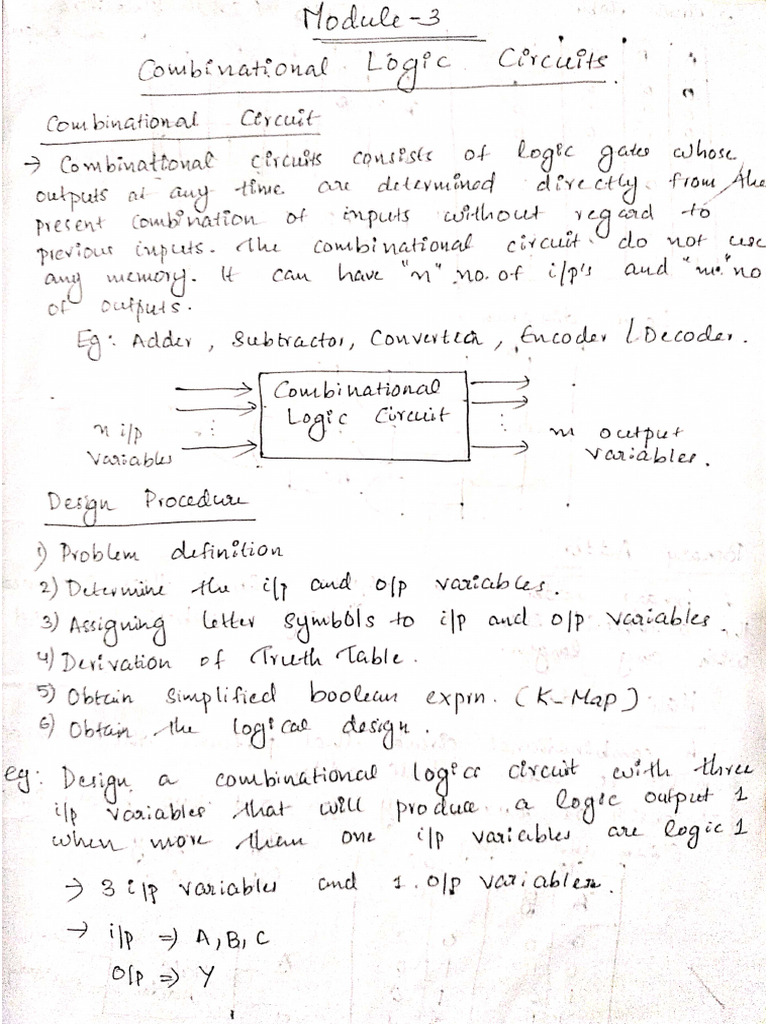 Module-3
Combinational Logic Circuits
Combinational Circuit
→ Combinational circuits consists of logic gates whose
outputs at any time are determined directly from the
present combination of inputs without regard to
previous inputs. The combinational circuit do not use
any memory. It can have "n" no. of i/p's and "m" no
of outputs.
Eg: Adder, Subtractor, Converter, Encoder / Decoder.
n i/p
variables
Combinational
Logic Circuit
m output
variables.
Design Procedure
1) Problem definition
2) Determine the i/p and o/p variables.
3) Assigning letter symbols to i/p and o/p variables
4) Derivation of Truth Table.
5) Obtain simplified boolean exprn. (K-Map)
6) Obtain the logical design.
eg: Design a combinational logic circuit with three
i/p variables that will produce a logic output 1
when more than one i/p variables are logic 1
→ 3 i/p variables and 1 o/p variables.
→ i/p ⇒ A, B, C
o/p ⇒ Y